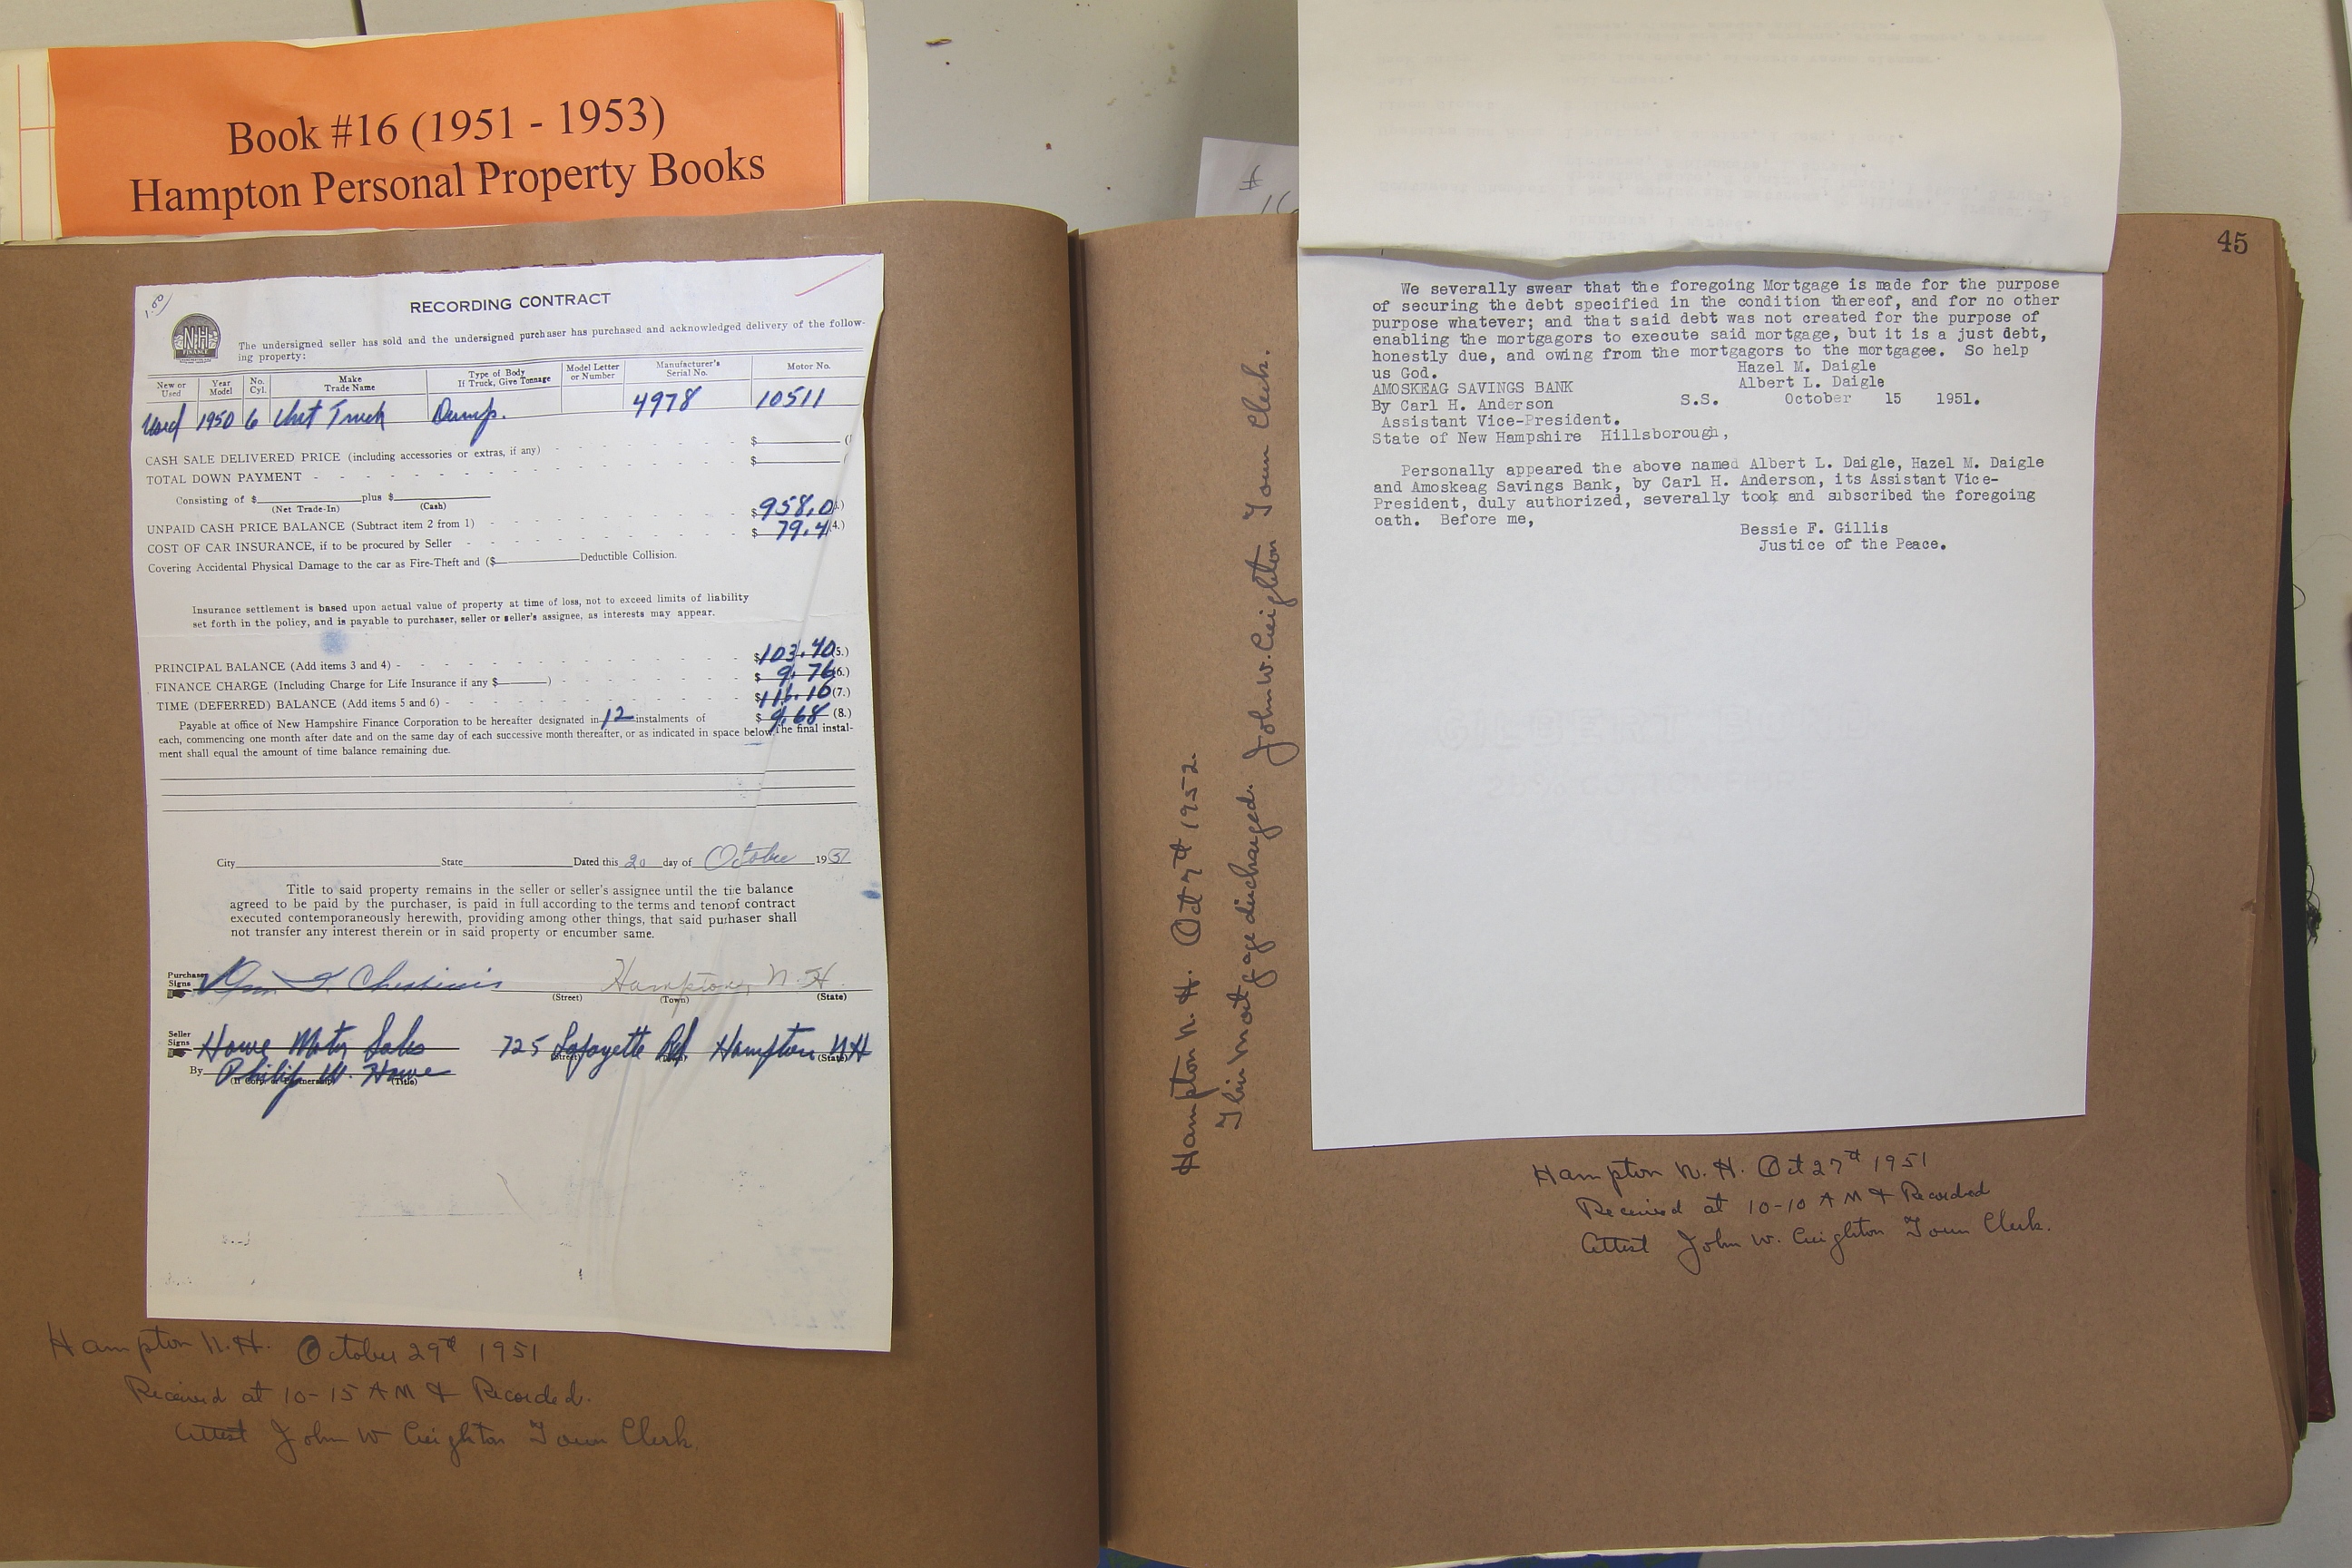 Book #16 (1951 - 1953)
Hampton Personal Property Books
#
16
1.00
RECORDING CONTRACT
N-H
FINANCE
The undersigned seller has sold and the undersigned purchaser has purchased and acknowledged delivery of the follow-
ing property:
New or Used Year Model No. Cyl. Make Trade Name Type of Body If Truck, Give Tonnage Model Letter or Number Manufacturer's Serial No. Motor No.
Used 1950 6 Truck Dump. 4978 10511
CASH SALE DELIVERED PRICE (including accessories or extras, if any) - - - - - - - $
TOTAL DOWN PAYMENT - - - - - - - - - - - - - $
Consisting of $ plus $
(Net Trade-In) (Cash)
UNPAID CASH PRICE BALANCE (Subtract item 2 from 1) - - - - - - - - $
COST OF CAR INSURANCE, if to be procured by Seller - - - - - - - - $ (4.)
Covering Accidental Physical Damage to the car as Fire-Theft and ($ Deductible Collision.
Insurance settlement is based upon actual value of property at time of loss, not to exceed limits of liability
set forth in the policy, and is payable to purchaser, seller or seller's assignee, as interests may appear.
PRINCIPAL BALANCE (Add items 3 and 4) - - - - - - - - - - $103.40 (5.)
FINANCE CHARGE (Including Charge for Life Insurance if any $ ) - - - - - - $ 9.76 (6.)
TIME (DEFERRED) BALANCE (Add items 5 and 6) - - - - - - - - $ (7.)
Payable at office of New Hampshire Finance Corporation to be hereafter designated in 12 instalments of $ 9.68 (8.)
each, commencing one month after date and on the same day of each successive month thereafter, or as indicated in space below. The final instal-
ment shall equal the amount of time balance remaining due.
City State Dated this 20 day of October 1951
Title to said property remains in the seller or seller's assignee until the balance
agreed to be paid by the purchaser, is paid in full according to the terms and of contract
executed contemporaneously herewith, providing among other things, that said shall
not transfer any interest therein or in said property or encumber same.
Purchaser
Signs Hampton, N.H.
(Street) (Town) (State)
Seller
Signs Howe Motor Sales 725 Lafayette Rd Hampton NH
(Street) (State)
By Philip W. Howe
(If Corp. or Partnership) (Title)
Hampton N.H. October 29th 1951
Received at 10-15 AM & Recorded.
Attest John W Creighton Town Clerk.
45
We severally swear that the foregoing Mortgage is made for the purpose
of securing the debt specified in the condition thereof, and for no other
purpose whatever; and that said debt was not created for the purpose of
enabling the mortgagors to execute said mortgage, but it is a just debt,
honestly due, and owing from the mortgagors to the mortgagee. So help
us God.
Hazel M. Daigle
AMOSKEAG SAVINGS BANK Albert L. Daigle
By Carl H. Anderson S.S. October 15 1951.
Assistant Vice-President.
State of New Hampshire Hillsborough,
Personally appeared the above named Albert L. Daigle, Hazel M. Daigle
and Amoskeag Savings Bank, by Carl H. Anderson, its Assistant Vice-
President, duly authorized, severally took and subscribed the foregoing
oath. Before me,
Bessie F. Gillis
Justice of the Peace.
Hampton N.H. Oct 7th 1952.
This mortgage discharged. John W. Creighton Town Clerk.
Hampton N.H. Oct 27th 1951
Received at 10-10 AM & Recorded
Attest John W. Creighton Town Clerk.